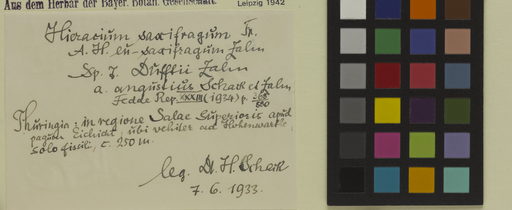 Aus dem Herbar der Bayer. Botan. Gesellschaft.
Leipzig 1942
Hieracium saxifragum Fr.
A. H. eu-saxifragum Zahn
Sp. J. Dufftii Zahn
a. angustius Schack et Zahn
Fedde Rep. XXXIII (1934) p.
Thuringia: in regione Salae superioris apud
pagum Eichicht, ubi vehiter ad Hohenwarte
solo fissili, c. 250 m.
leg. Dr. H. Schack
7. 6. 1933.